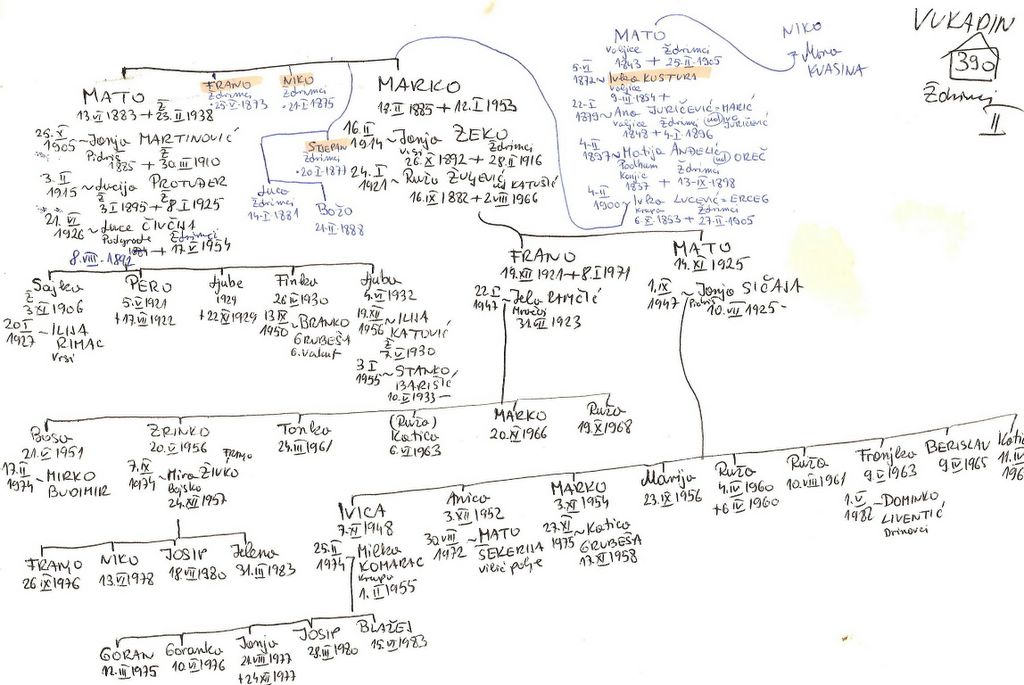 VUKADIN
390
Ždrimci
II
NIKO
Mara
KVASINA
MATO
Valjice Ždrimci
1843 + 25·II·1905
5·VI
1872 ~ Ivka KUSTURA
Valjice
9·III·1854 +
22·I
1879 ~ Ana JURIČEVIĆ=MARIĆ
Valjice Ždrimci
ud JURIČEVIĆ
1848 + 4·I·1896
4·II
1897 ~ Matija ANĐELIĆ
ud OREČ
Podhum Ždrimci
Konjic
1857 + 13·IX·1898
4·II
1900 ~ Ivka LUCEVIĆ=ERCEG
Krupa Ždrimci
6·X·1853 + 27·II·1905
MATO
13.VI 1883 + 23.II 1938
FRANO
Ždrimci
·25·V·1873
NIKO
Ždrimci
·21·I·1875
MARKO
+ 12.I 1953
STJEPAN
Ždrimci
·20·I·1871
Luca
Ždrimci
14·I·1881
BOŽO
21·II·1888
25.XI
1905 ~ Janja MARTINOVIĆ
Pidriš
1885 + 30.III 1910
3.II
1915 ~ Lucija PROTUĐER
3 I 1895 + 8 I 1925
21.VI
1926 ~ Luce ČIVČIJA
Podgrađe Ždrimci
+ 17.V 1954
8.VIII·1892
16.II
1914 ~ Janja ZEKO
Vrsi Ždrimci
26.XI 1892 + 28.II 1916
24.I
1921 ~ Ruža ŽULJEVIĆ
ud KATUŠIĆ
16.IX 1882 + 2.VIII 1966
FRANO
19.XII 1921 + 8.I 1971
22.I
1947 ~ Jela
Mračaj
31.VII 1923
MATO
14.XI 1925
1.IX
1947 ~ Janja SIČAJA
Pidriš
10.VII 1925 -
Sajka
3 XI 1906
20 I
1927 ~ ILIJA
RIMAC
Vrsi
PERO
5.V 1921
+ 17.VII 1922
Ljube
1929
+ 22 XII 1929
Finka
26 IV 1930
13 IX
1950 ~ BRANKO
GRUBEŠA
G.Vakuf
Ljuba
4.VII 1932
19.XII
1956 ~ ILIJA
KATOVIĆ
7.V 1930
3 I
1955 ~ STANKO
BARIŠIĆ
10.II 1933 -
Bosa
21.V 1951
17.II
1974 ~ MIRKO
BUDIMIR
ZRINKO
20.V 1956
7.IX
1974 ~ Mira ŽIVKO
Franjo
Bojska
24.XII 1957
Tonka
24.III 1961
(Ruža)
Katica
6.VI 1963
MARKO
20.XI 1966
Ruža
19.X 1968
FRANJO
26 IX 1976
NIKO
13.VI 1978
JOSIP
18 VII 1980
Jelena
31.III 1983
IVICA
7.XI 1948
25.II
1974 ~ Milka
KOMARAC
Krupa
1.II 1955
Anica
3.XII 1952
30.VIII
1972 ~ MATO
ŠEKERIJA
vilić polje
MARKO
3.XI 1954
27.XI
1975 ~ Katica
GRUBEŠA
17.XI 1958
Marija
23.IX 1956
Ruža
4.IV 1960
+ 6 IV 1960
Ruža
10.VIII 1961
Franjka
9.V 1963
1.V
1982 ~ DOMINKO
LIVENTIĆ
Drinovci
BERISLAV
9.IV 1965
11.IV
GORAN
12.III 1975
Goranka
10.VI 1976
Janja
21.VIII 1977
+ 24 XII 1977
JOSIP
28.III 1980
BLAŽEJ
15.VI 1983